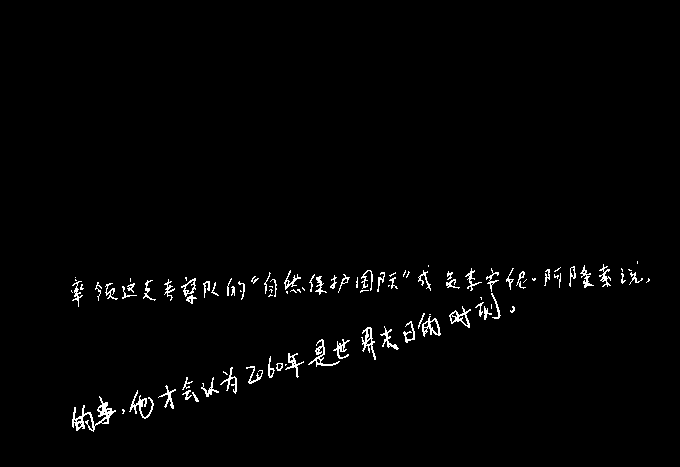 率领这支考察队的“自然保护国际”成员李安妮·阿隆索说，
的事，他才会认为2060年是世界末日的时刻。